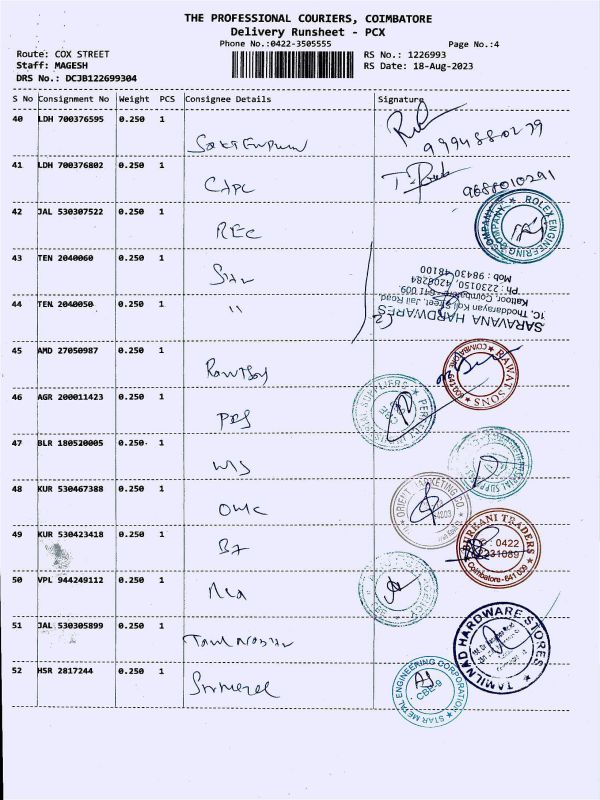 THE PROFESSIONAL COURIERS, COIMBATORE
Delivery Runsheet - PCX
Phone No.:0422-3505555
Page No.:4
Route: COX STREET
RS No.: 1226993
Staff: MAGESH
RS Date: 18-Aug-2023
DRS No.: DCJB122699304
S No Consignment No Weight PCS Consignee Details Signature
40 LDH 700376595 0.250 1
9994880279
41 LDH 700376802 0.250 1
9688010291
42 JAL 530307522 0.250 1 REC
ROLEX ENGINEERING COMPANY
43 TEN 2040060 0.250 1 Star
44 TEN 2040050 0.250 1 "
SARAVANA HARDWARES
1C, Thoddarayan Koil Street, Jail Road,
Kattoor, Coimbatore - 641 009.
Ph : 2230150, 4206284
Mob : 98430 48100
45 AMD 27050987 0.250 1
RAWAT SONS
COIMBATORE
641009
46 AGR 200011423 0.250 1
47 BLR 180520005 0.250 1
48 KUR 530467388 0.250 1 OMC
ORIENT MARKETING CO.
49 KUR 530423418 0.250 1 BT
BURHANI TRADERS
0422
2231089
Coimbatore-641 009
50 VPL 944249112 0.250 1
51 JAL 530305899 0.250 1
TAMILNAD HARDWARE STORES
52 HSR 2817244 0.250 1
STAR METAL ENGINEERING CORPORATION
CBE-9